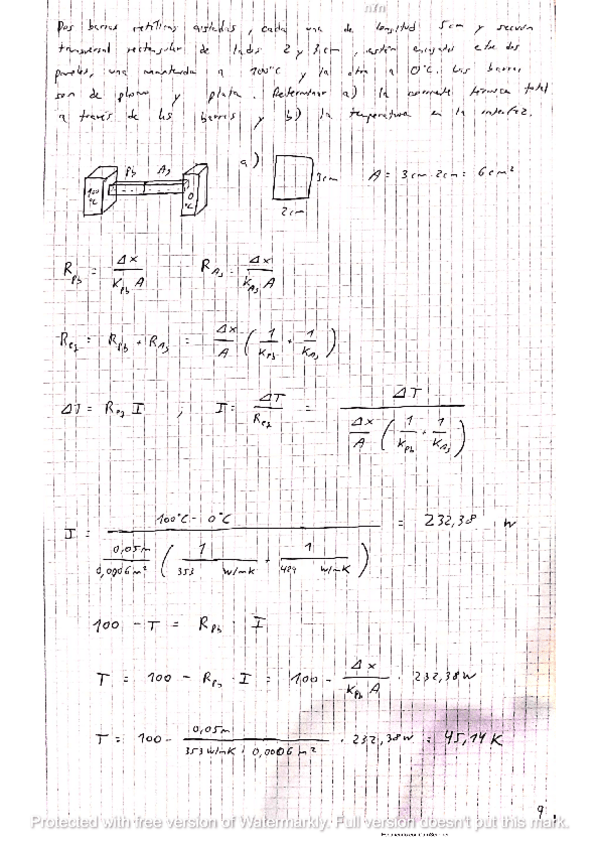 Dos barras metálicas aisladas, cada una de longitud 5cm y sección
transversal rectangular de lados 2 y 3cm, están encajadas entre dos
paredes, una mantenida a 100°C y la otra a 0°C. Las barras
son de plomo y plata. Determinar a) la corriente térmica total
a través de las barras y b) la temperatura en la interfaz.
Pb Ag
100 °C
0 °C
a)
3cm
2cm
A = 3cm · 2cm = 6cm²
R_Pb = Δx / (K_Pb A) R_Ag = Δx / (K_Ag A)
R_eq = R_Pb + R_Ag = Δx/A (1/K_Pb + 1/K_Ag)
ΔT = R_eq I ; I = ΔT/R_eq = ΔT / (Δx/A (1/K_Pb + 1/K_Ag))
I = (100°C - 0°C) / (0,05m/0,0006m² (1/(353 W/mK) + 1/(429 W/mK))) = 232,38 W
100 - T = R_Pb · I
T = 100 - R_Pb · I = 100 - Δx/(K_Pb A) · 232,38W
T = 100 - 0,05m/(353 W/mK · 0,0006m²) · 232,38W = 45,14 K
9
Protected with free version of Watermarkly. Full version doesn't put this mark.